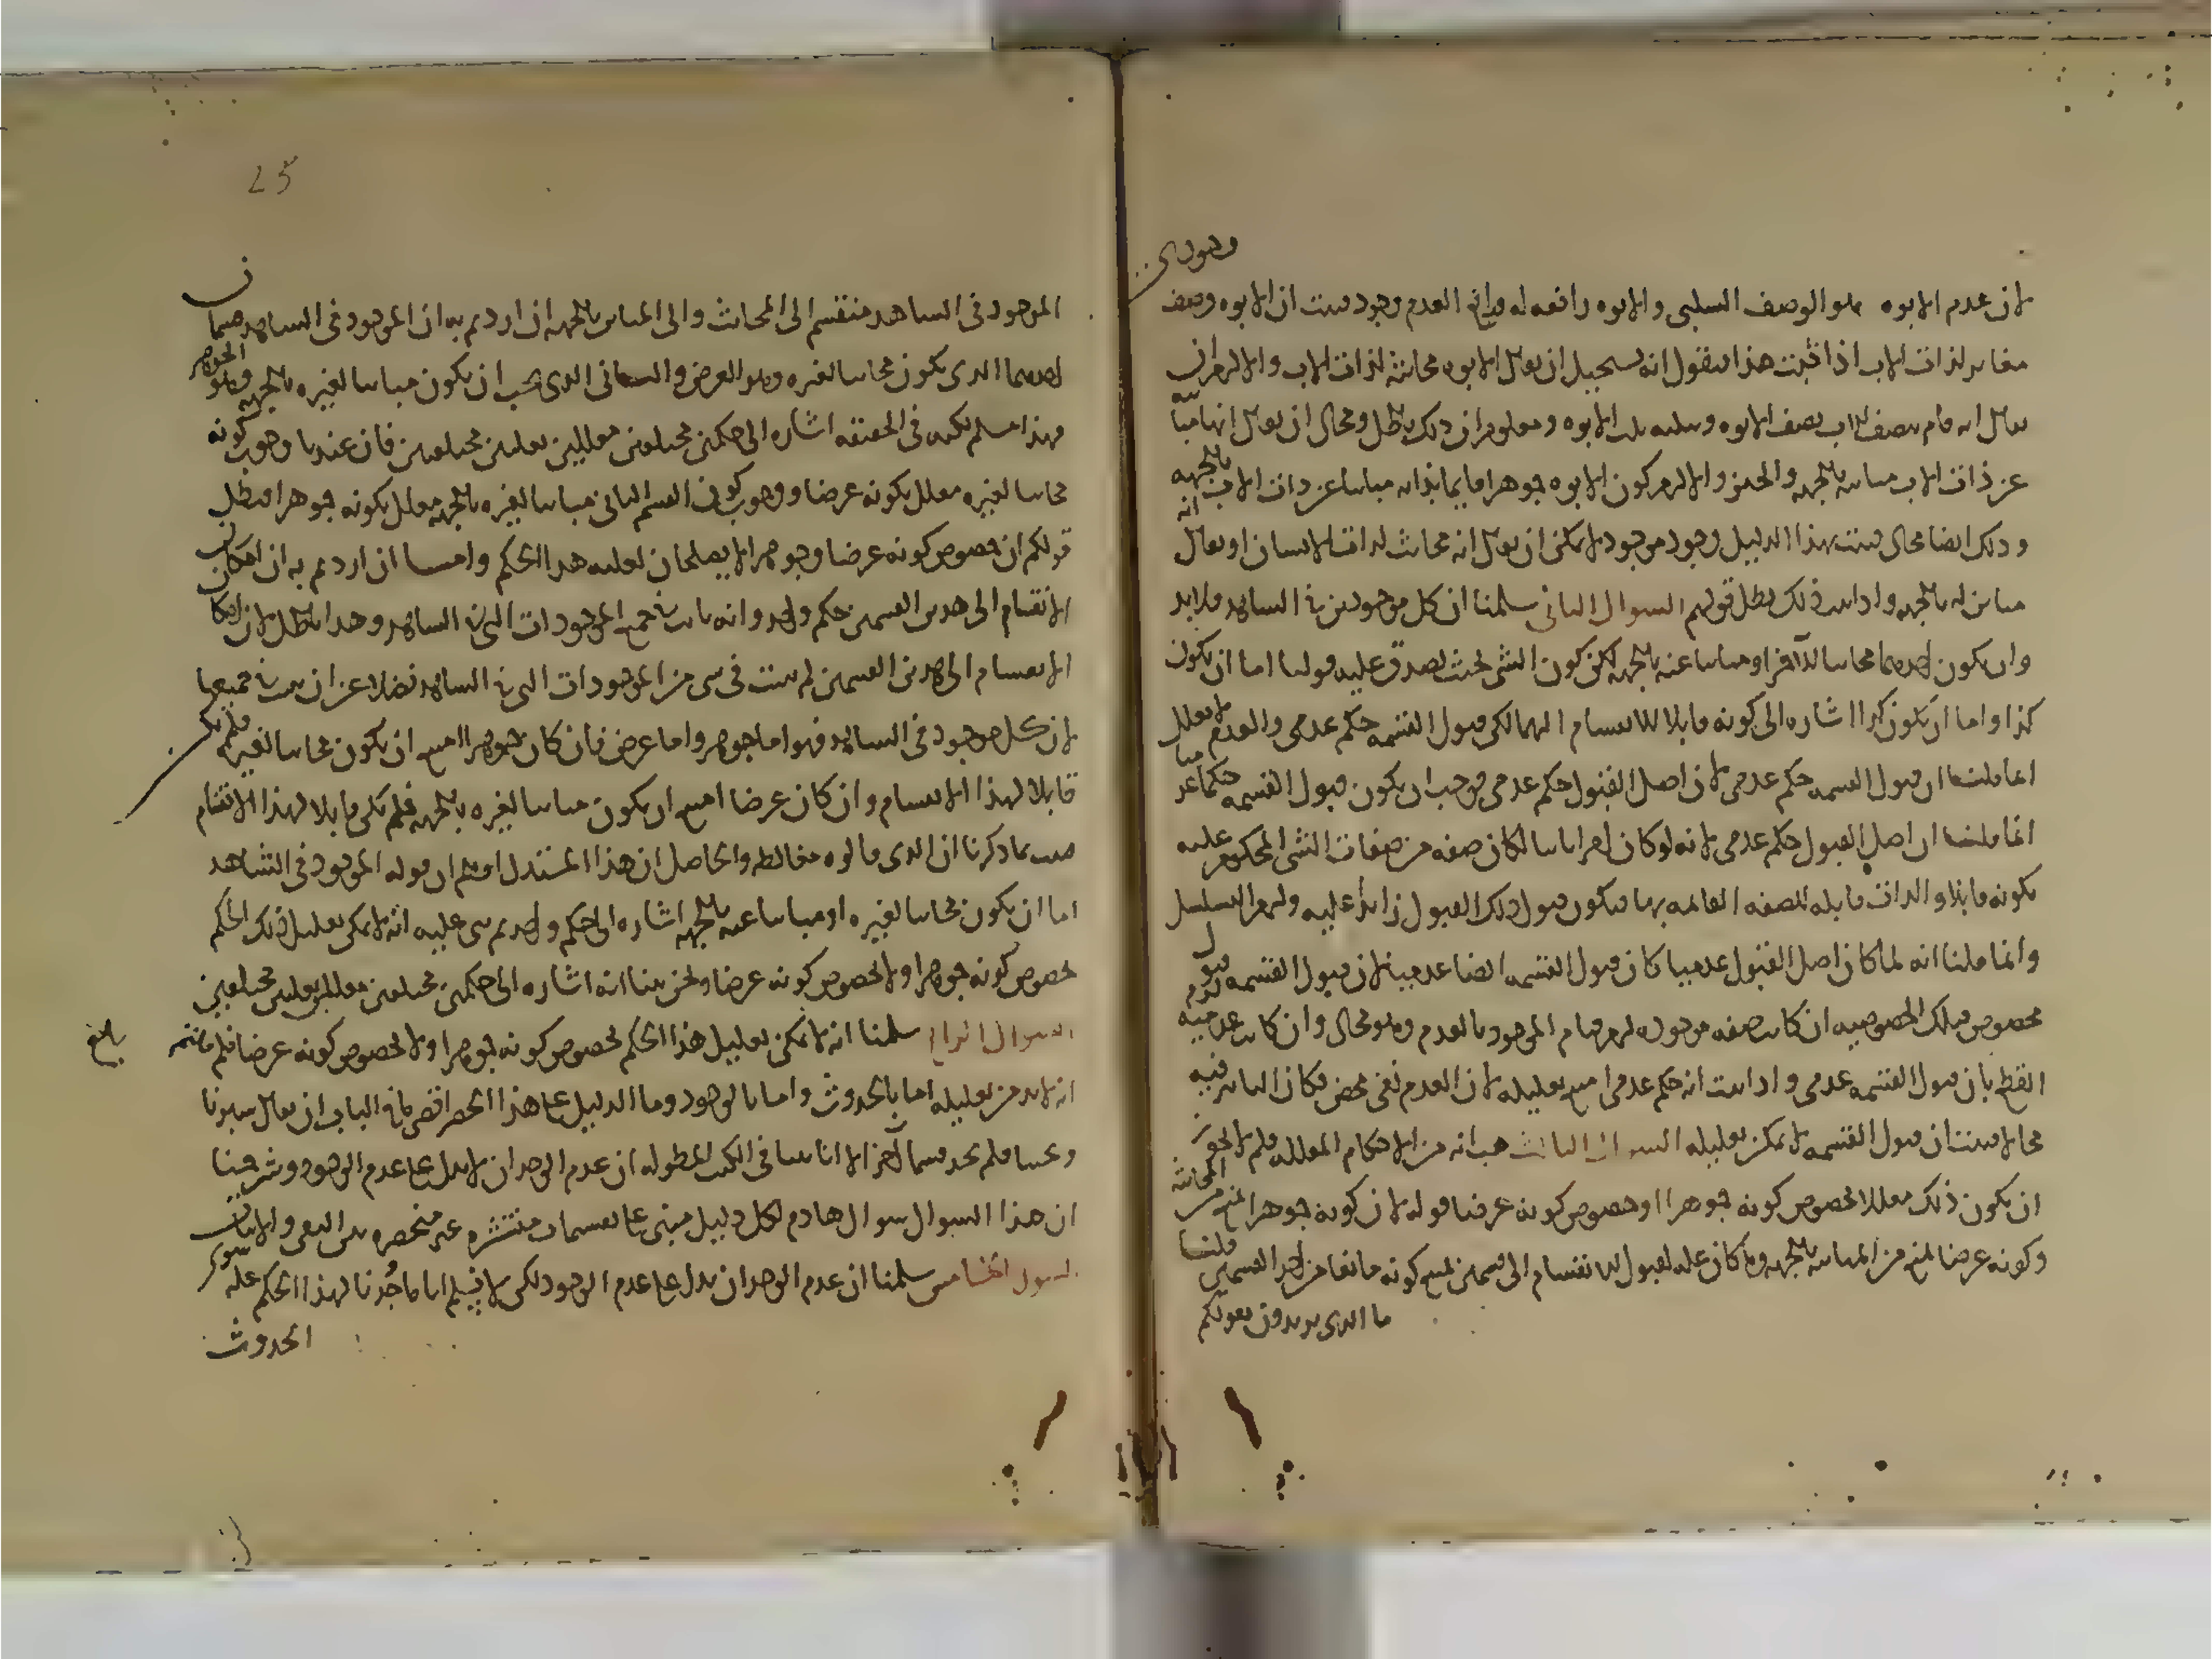 وجودى
لان عدم الابوه هو الوصف السلبى والابوه رافعه له ورافع العدم وجود فثبت ان الابوه وصف
مغاير لذات الاب اذا ثبت هذا فنقول انه يستحيل ان يقال الابوه محايثه لذات الاب والا لزم ان
يقال انه قام بنصف الاب نصف الابوه وبثلثه ثلث الابوه ومعلوم ان ذلك باطل ومحال ان يقال انها مباينه
عن ذات الاب مباينه بالجهه والحيز والا لزم كون الابوه جوهرا قايما بذاته مباينا عن ذات الاب بالجهه
وذلك ايضا محال فثبت بهذا الدليل وجود موجود لا يمكن ان يقال انه محايث لذات الانسان او يقال انه
مباين له بالجهه واذا ثبت ذلك بطل قولهم السوال الثانى سلمنا ان كل موجودين فى الشاهد فلا بد
وان يكون احدهما محايثا للآخر او مباينا عنه بالجهه لكن كون الشى بحيث يصدق عليه قولنا اما ان يكون
كذا واما ان يكون كذا اشاره الى كونه قابلا للانقسام اليهما لكن قبول القسمه حكم عدمى والعدم لا يعلل
انما قلنا ان قبول القسمه حكم عدمى لان اصل القبول حكم عدمى فوجب ان يكون قبول القسمه حكما عدميا
انما قلنا ان اصل القبول حكم عدمى لانه لو كان امرا ثابتا لكان صفه من صفات الشى المحكوم عليه
بكونه قابلا والذات قابله للصفه القائمه بها فيكون قبول ذلك القبول زائدا عليه ولزم التسلسل
وانما قلنا انه لما كان اصل القبول عدميا كان قبول القسمه ايضا عدميا لان قبول القسمه قبول
مخصوص فتلك الخصوصيه ان كانت صفه موجوده لزم قيام الموجود بالعدم وهو محال وان كانت عدميه لزم
القطع بان قبول القسمه عدمى واذا ثبت انه حكم عدمى امتنع تعليله لان العدم نفى محض فكان التاثير فيه
محالا فثبت ان قبول القسمه لا يمكن تعليله السوال الثالث هب انه من الاحكام المعلله فلم لا يجوز
ان يكون ذلك معللا بخصوص كونه جوهرا او بخصوص كونه عرضا قوله لان كونه جوهرا يمنع من المحايثه
وكونه عرضا يمنع من المباينه بالجهه وما كان عله لقبول الانقسام الى قسمين يمتنع كونه مانعا من احد القسمين قلنا
ما الذى تريدون بقولكم
25
الموجود فى الشاهد منقسم الى المحايث والى المباين بالجهه ان اردتم به ان الموجود فى الشاهد قسمان
احدهما الذى يكون محايثا لغيره وهو العرض والثانى الذى يجب ان يكون مباينا لغيره بالجهه وهو الجوهر
فهذا مسلم لكنه فى الحقيقه اشاره الى حكمين مختلفين معللين بعلتين مختلفتين فان عندنا وجوب كونه
محايثا لغيره معلل بكونه عرضا ووجوب كون القسم الثانى مباينا لغيره بالجهه معلل بكونه جوهرا فبطل
قولكم ان خصوص كونه عرضا وجوهرا لا يصلحان لعليه هذا الحكم وامسا ان اردتم به ان امكان
الانقسام الى هذين القسمين حكم واحد وانه ثابت فى جميع الموجودات التى فى الشاهد وهذا باطل لان امكان
الانقسام الى هذين القسمين لم يثبت فى شى من الموجودات التى فى الشاهد فضلا عن ان يثبت فى جميعها
لان كل موجود فى الشاهد فهو اما جوهر واما عرض فان كان جوهرا امتنع ان يكون محايثا لغيره فلم يكن
قابلا لهذا الانقسام وان كان عرضا امتنع ان يكون مباينا لغيره بالجهه فلم يكن قابلا لهذا الانقسام
فثبت بما ذكرنا ان الذى قالوه مغالطه والحاصل ان هذا المستدل اوهم ان قوله الموجود فى الشاهد
اما ان يكون محايثا لغيره او مباينا عنه بالجهه اشاره الى حكم واحد ثم بنى عليه انه لا يمكن تعليل ذلك الحكم
بخصوص كونه جوهرا ولا بخصوص كونه عرضا ونحن بينا انه اشاره الى حكمين مختلفين معللين بعلتين مختلفتين
السوال الرابع سلمنا انه لا يمكن تعليل هذا الحكم بخصوص كونه جوهرا ولا بخصوص كونه عرضا فلم قلتم
بلغ
انه لا بد من تعليله اما بالحدوث واما بالوجود وما الدليل على هذا الحصر اقصى ما فى الباب ان يقال سبرنا
وبحثنا فلم نجد قسما آخر الا انا بينا فى الكتب المطوله ان عدم الوجدان لا يدل على عدم الوجود وشرحنا
ان هذا السوال سوال هادم لكل دليل مبنى على تقسيمات منتشره غير منحصره بين النفى والاثبات
السوال الخامس سلمنا ان عدم الوجدان يدل على عدم الوجود لكن لا نسلم انا ما وجدنا لهذا الحكم عله سوى
الحدوث